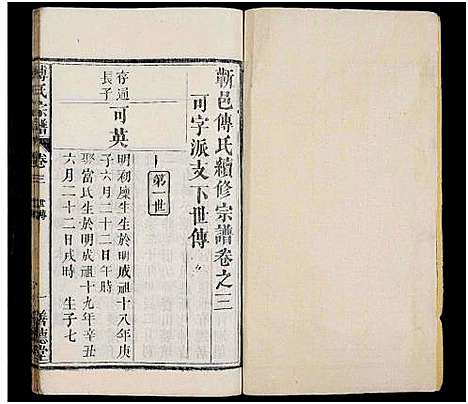 蘄邑傅氏續修宗譜卷之三
可字派支下世傳
第一世
存通長子
可英
明利燥生生於明成祖十八年庚
子六月二十二日午時
娶富氏生於明成祖十九年辛丑
六月二十二日戌時 生子七
傅氏宗譜
卷三
世傳
一
善德堂